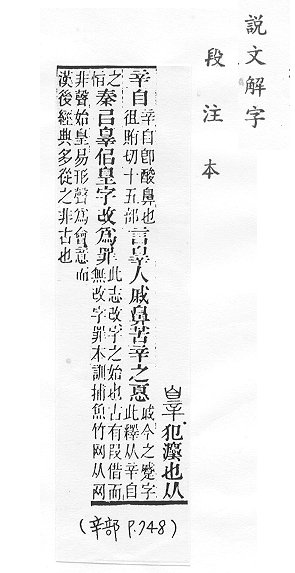 說文解字
段注本
辠犯灋也从
辛自
辛自卽酸鼻也
徂賄切十五部
言辠人戚鼻苦辛之𢝊
戚今之蹙字
此釋从辛自
之
恉
秦㠯辠佀皇字改爲罪
此志改字之始也古有叚借而
無改字罪本訓捕魚竹网从网
非聲始皇易形聲爲會意而
漢後經典多從之非古也
(辛部 P.748)